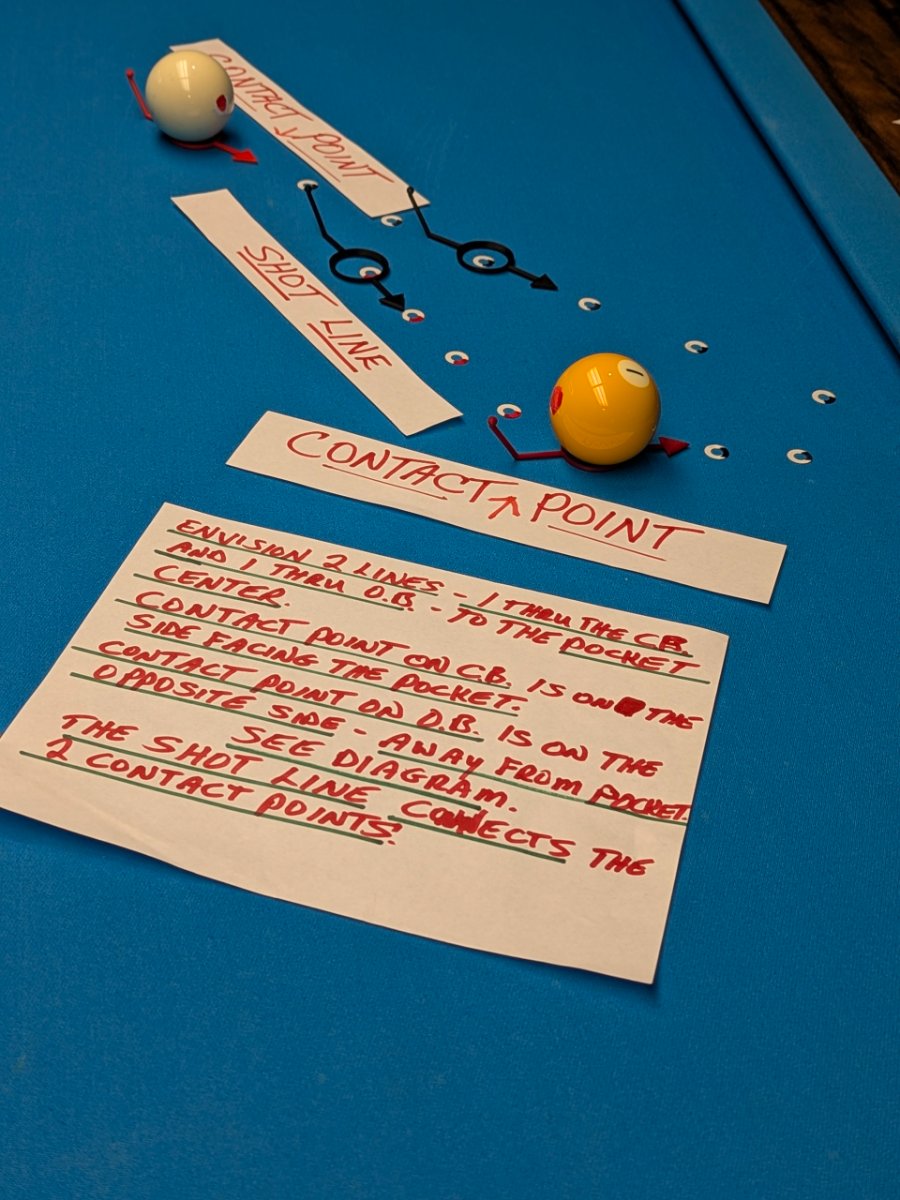 CONTACT POINT
SHOT LINE
1
CONTACT ↑ POINT
ENVISION 2 LINES - 1 THRU THE C.B.
AND 1 THRU O.B. - TO THE POCKET
CENTER.
CONTACT POINT ON C.B. IS ON THE
SIDE FACING THE POCKET.
CONTACT POINT ON O.B. IS ON THE
OPPOSITE SIDE - AWAY FROM POCKET.
SEE DIAGRAM.
THE SHOT LINE CONNECTS THE
2 CONTACT POINTS.